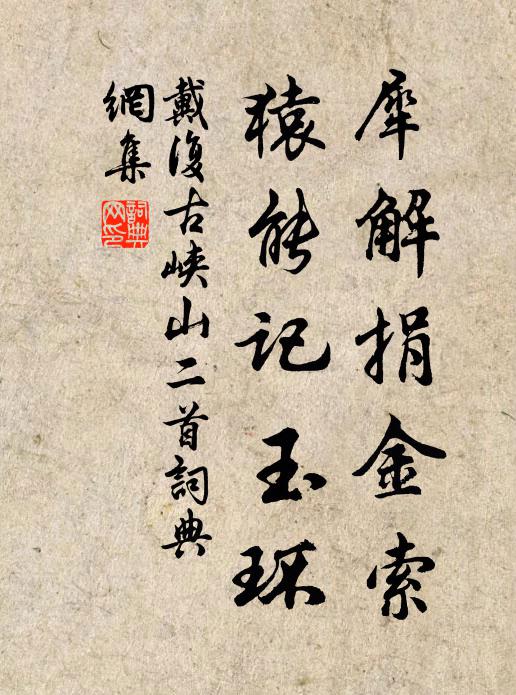 犀解捐金索
猿能记玉环
戴復古峡山二首詞典
網集
詞典
网印